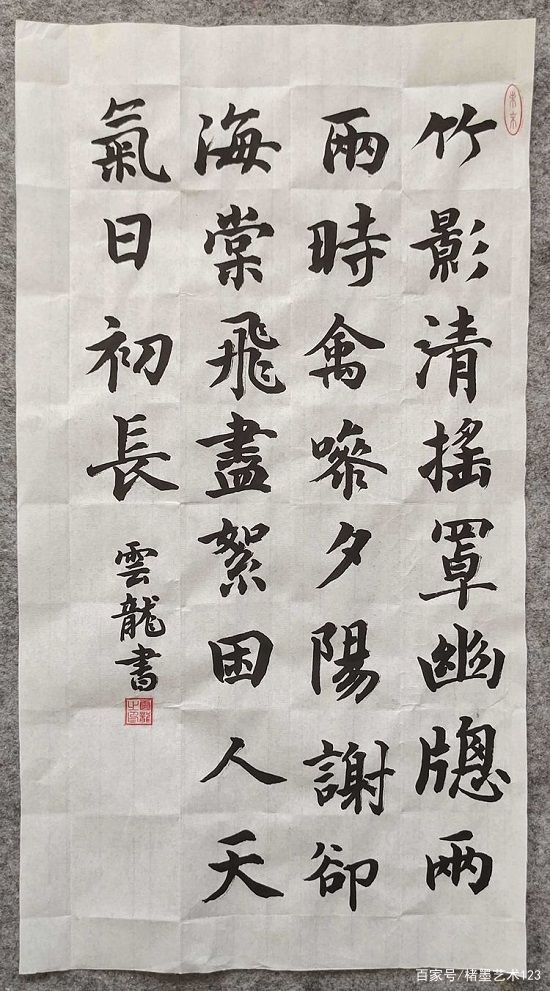 竹影清搖罩幽牕兩
兩時禽噪夕陽謝卻
海棠飛盡絮困人天
氣日初長
雲龍書
百家号/楮墨艺术123